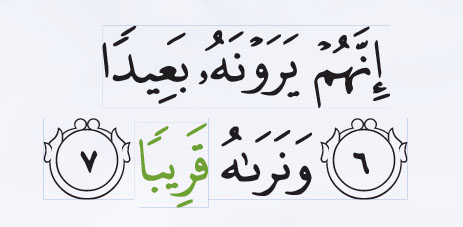 إِنَّهُمْ يَرَوْنَهُۥ بَعِيدًا
٦ وَنَرَىٰهُ قَرِيبًا ٧